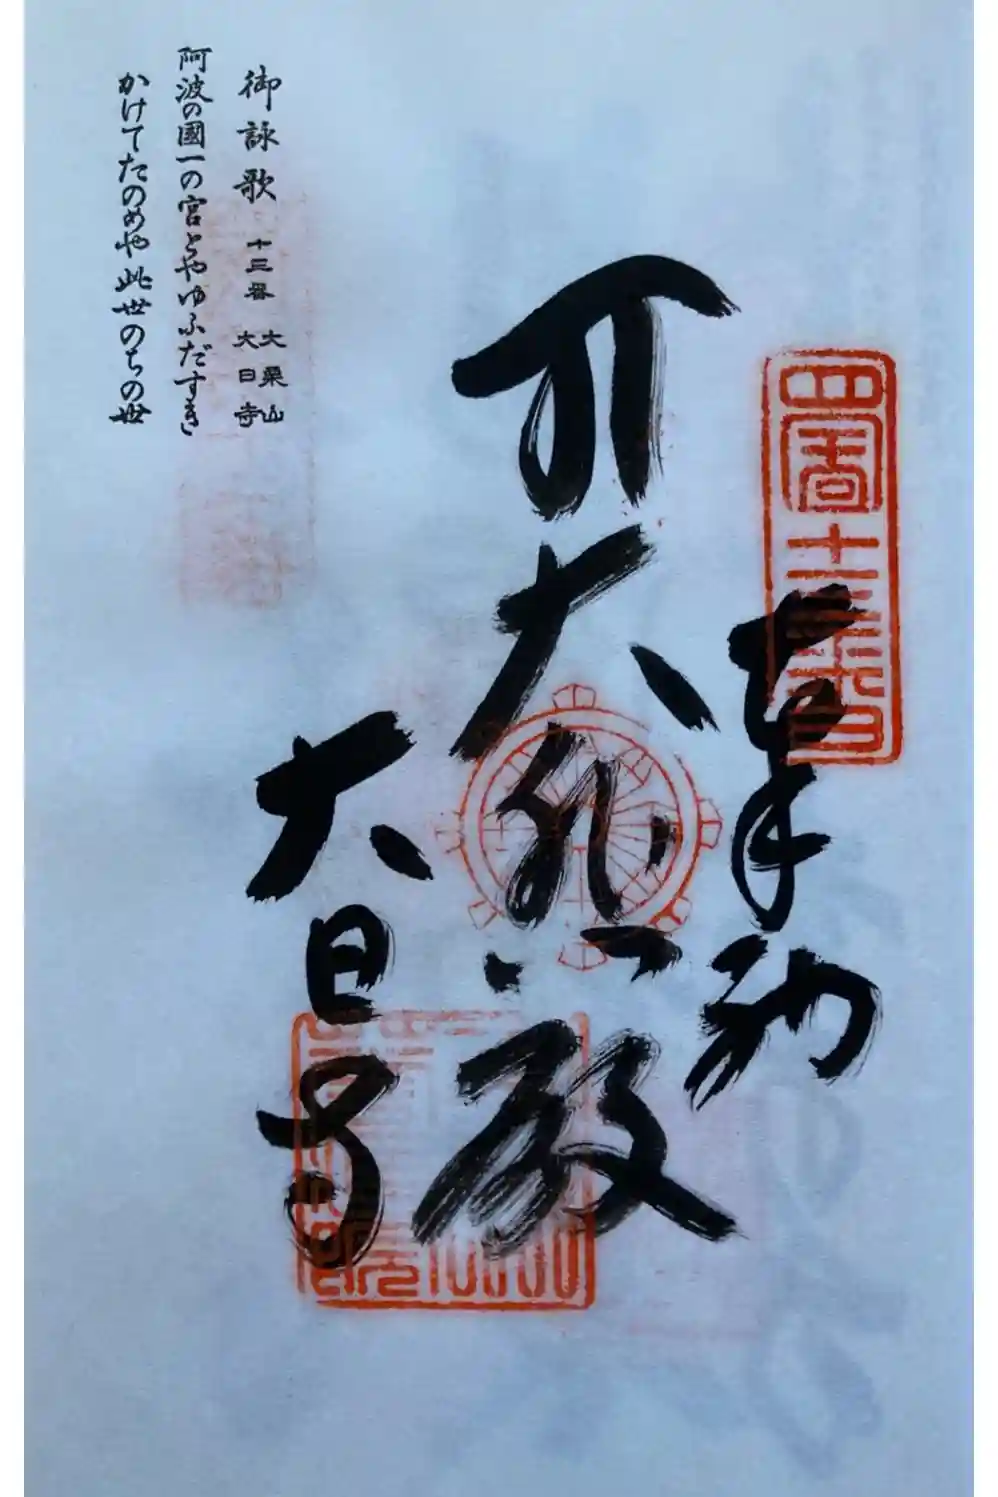 四国十三番
奉納
大悲殿
大日寺
御詠歌 十三番 大栗山 大日寺
阿波の國一の宮とやゆふだすき
かけてたのめや此世のちの世